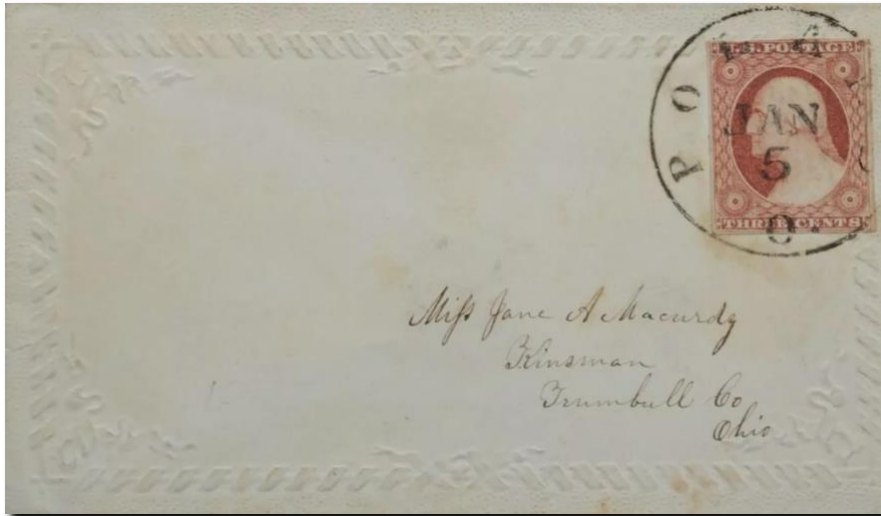 U.S. POSTAGE
JAN
5
THREE CENTS
O.
Miſs Jane A Macurdy
Kinsman
Trumbull Co
Ohio